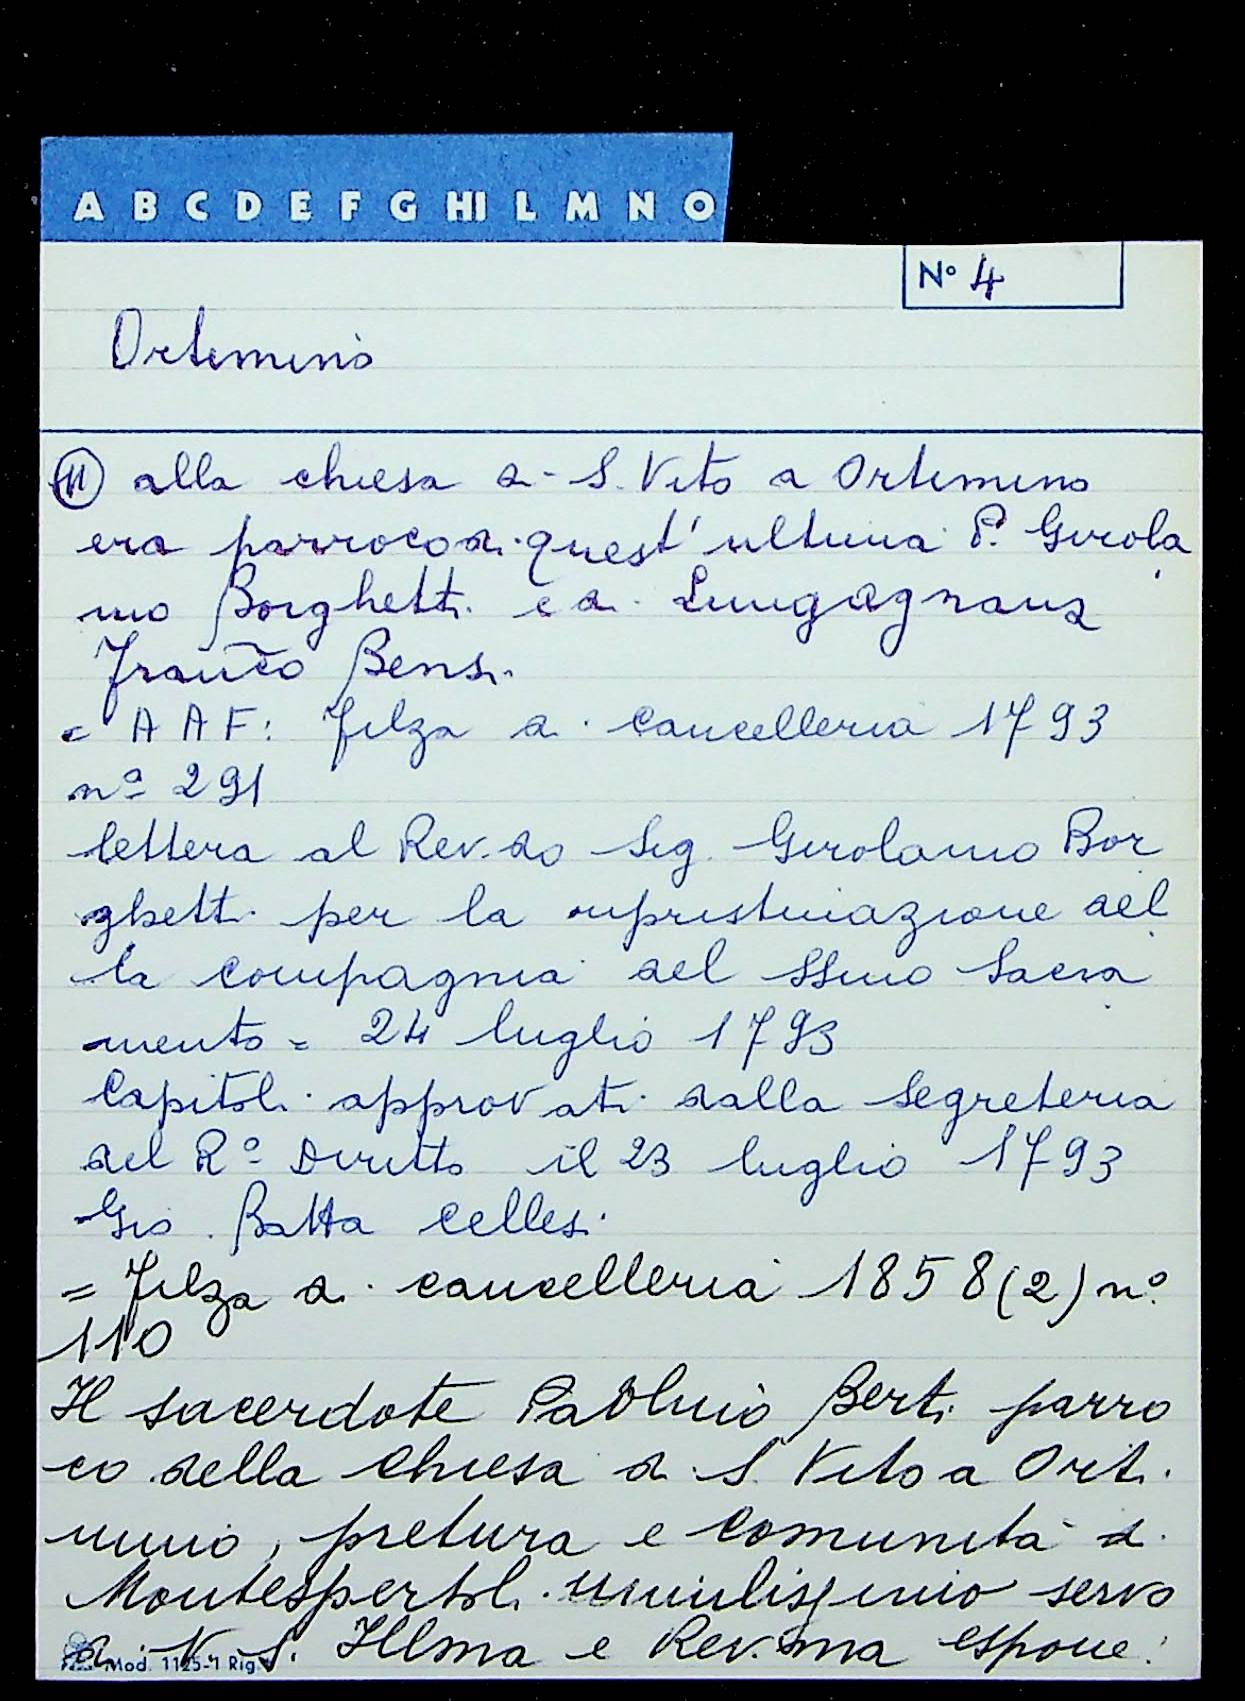 A B C D E F G HI L M N O
N° 4
Ortimino
(11) alla chiesa di S. Vito a Ortimino
era parroco di quest'ultima P. Girola
mo Borghetti e di Lungagnana
Franco Bensi.
= A A F: Filza di cancelleria 1793
nº 291
lettera al Rev.do Sig. Girolamo Bor
ghetti per la ripristinazione del
la compagnia del SSmo Sacra
mento = 24 luglio 1793
Capitoli approvati dalla Segreteria
del Rº Diritto il 23 luglio 1793
Gio. Batta Cellesi
= Filza di cancelleria 1858(2) nº
110
Il sacerdote Paolino Berti parro
co della Chiesa di S. Vito a Orti
mino, pretura e comunità di
Montespertoli umilissimo servo
di V. S. Illma e Rev.ma espone:
Mod. 1125-1 Rig.